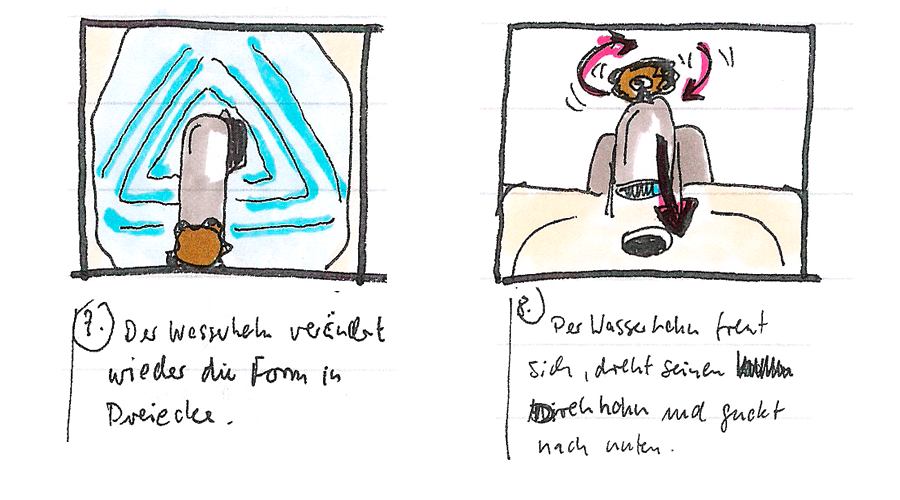 7. Der Wasserhahn verändert
wieder die Form in
Dreiecke.
8.
Der Wasserhahn freut
sich, dreht seinen
Drehhahn und guckt
nach unten.